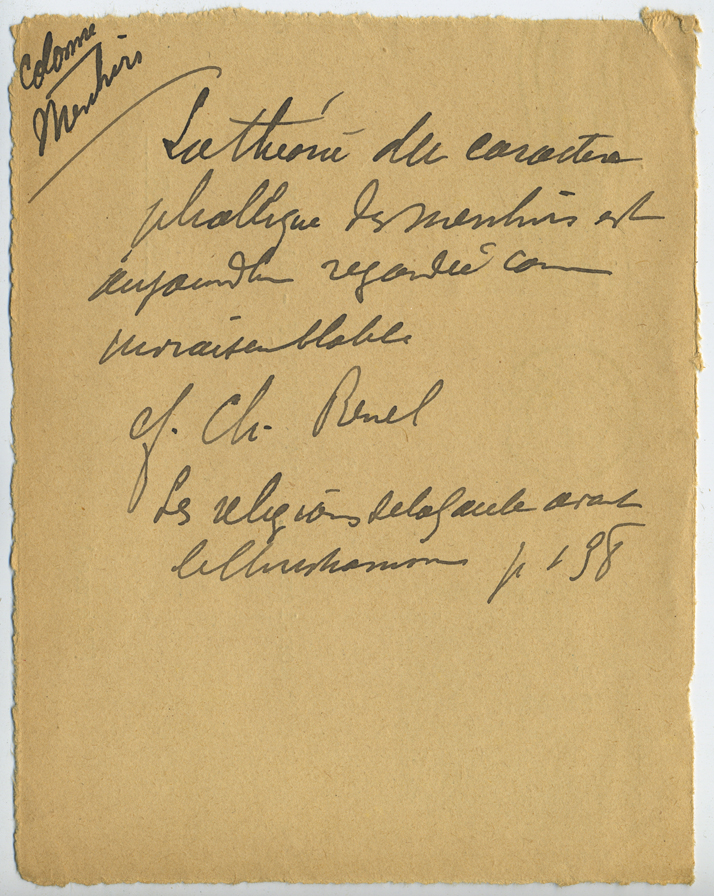 Colonne
Menhirs
La théorie du caractère
phallique des menhirs est
aujourd'hui regardée comme
invraisemblable
cf. Ch. Renel
Les religions de la Gaule avant
le Christianisme p 198